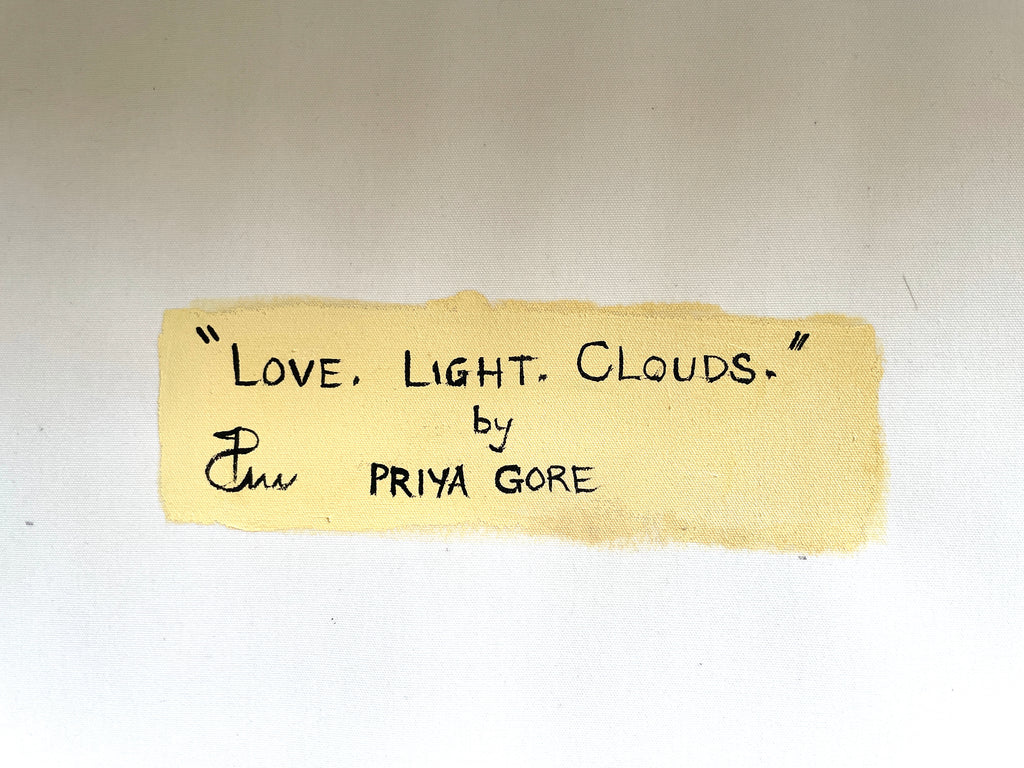 "LOVE. LIGHT. CLOUDS."
by
PRIYA GORE